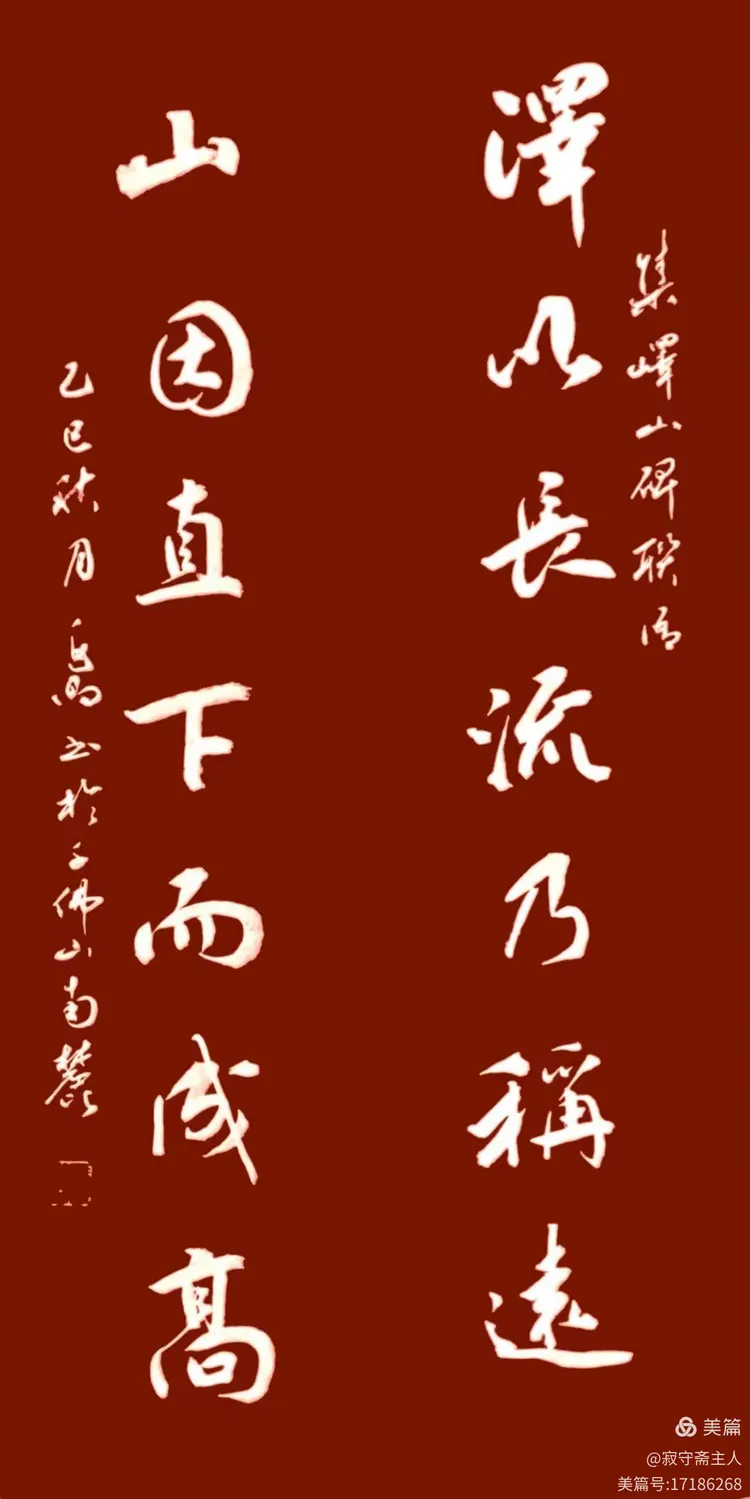 集嶧山碑聯句
澤以長流乃稱遠
山因直下而成高
乙巳秋月 禹明 书於千佛山南麓
美篇
@寂守斋主人
美篇号:17186268